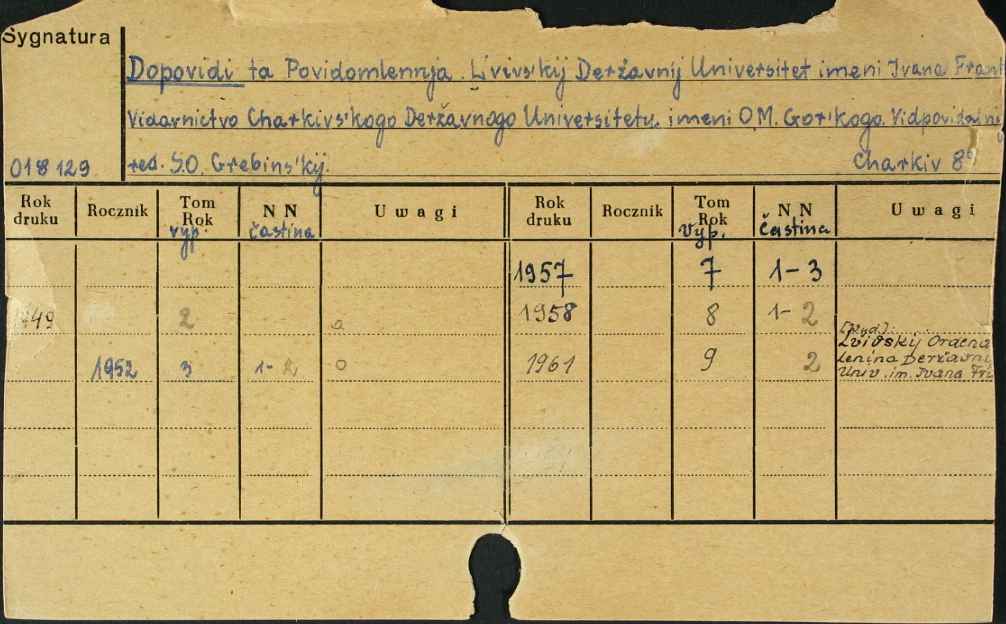 Sygnatura
Dopovidi ta Povidomlennja. L'vivs'kij Deržavnij Universitet imeni Ivana Frank
Vidavnictvo Charkivs'kogo Deržavnogo Universitetu imeni O.M. Gor'kogo. Vidpovidalnij
018129 red. S.O. Grebins'kij. Charkiv 8°
Rok druku Rocznik Tom Rok N N Uwagi Rok druku Rocznik Tom Rok N N Uwagi
vyp. častina Vyp. častina
1957 7 1-3
49 2 1958 8 1-2
1952 3 1- 1961 9 2
Lvivskij Ordena
Lenina Deržavni
Univ. im. Ivana Fr